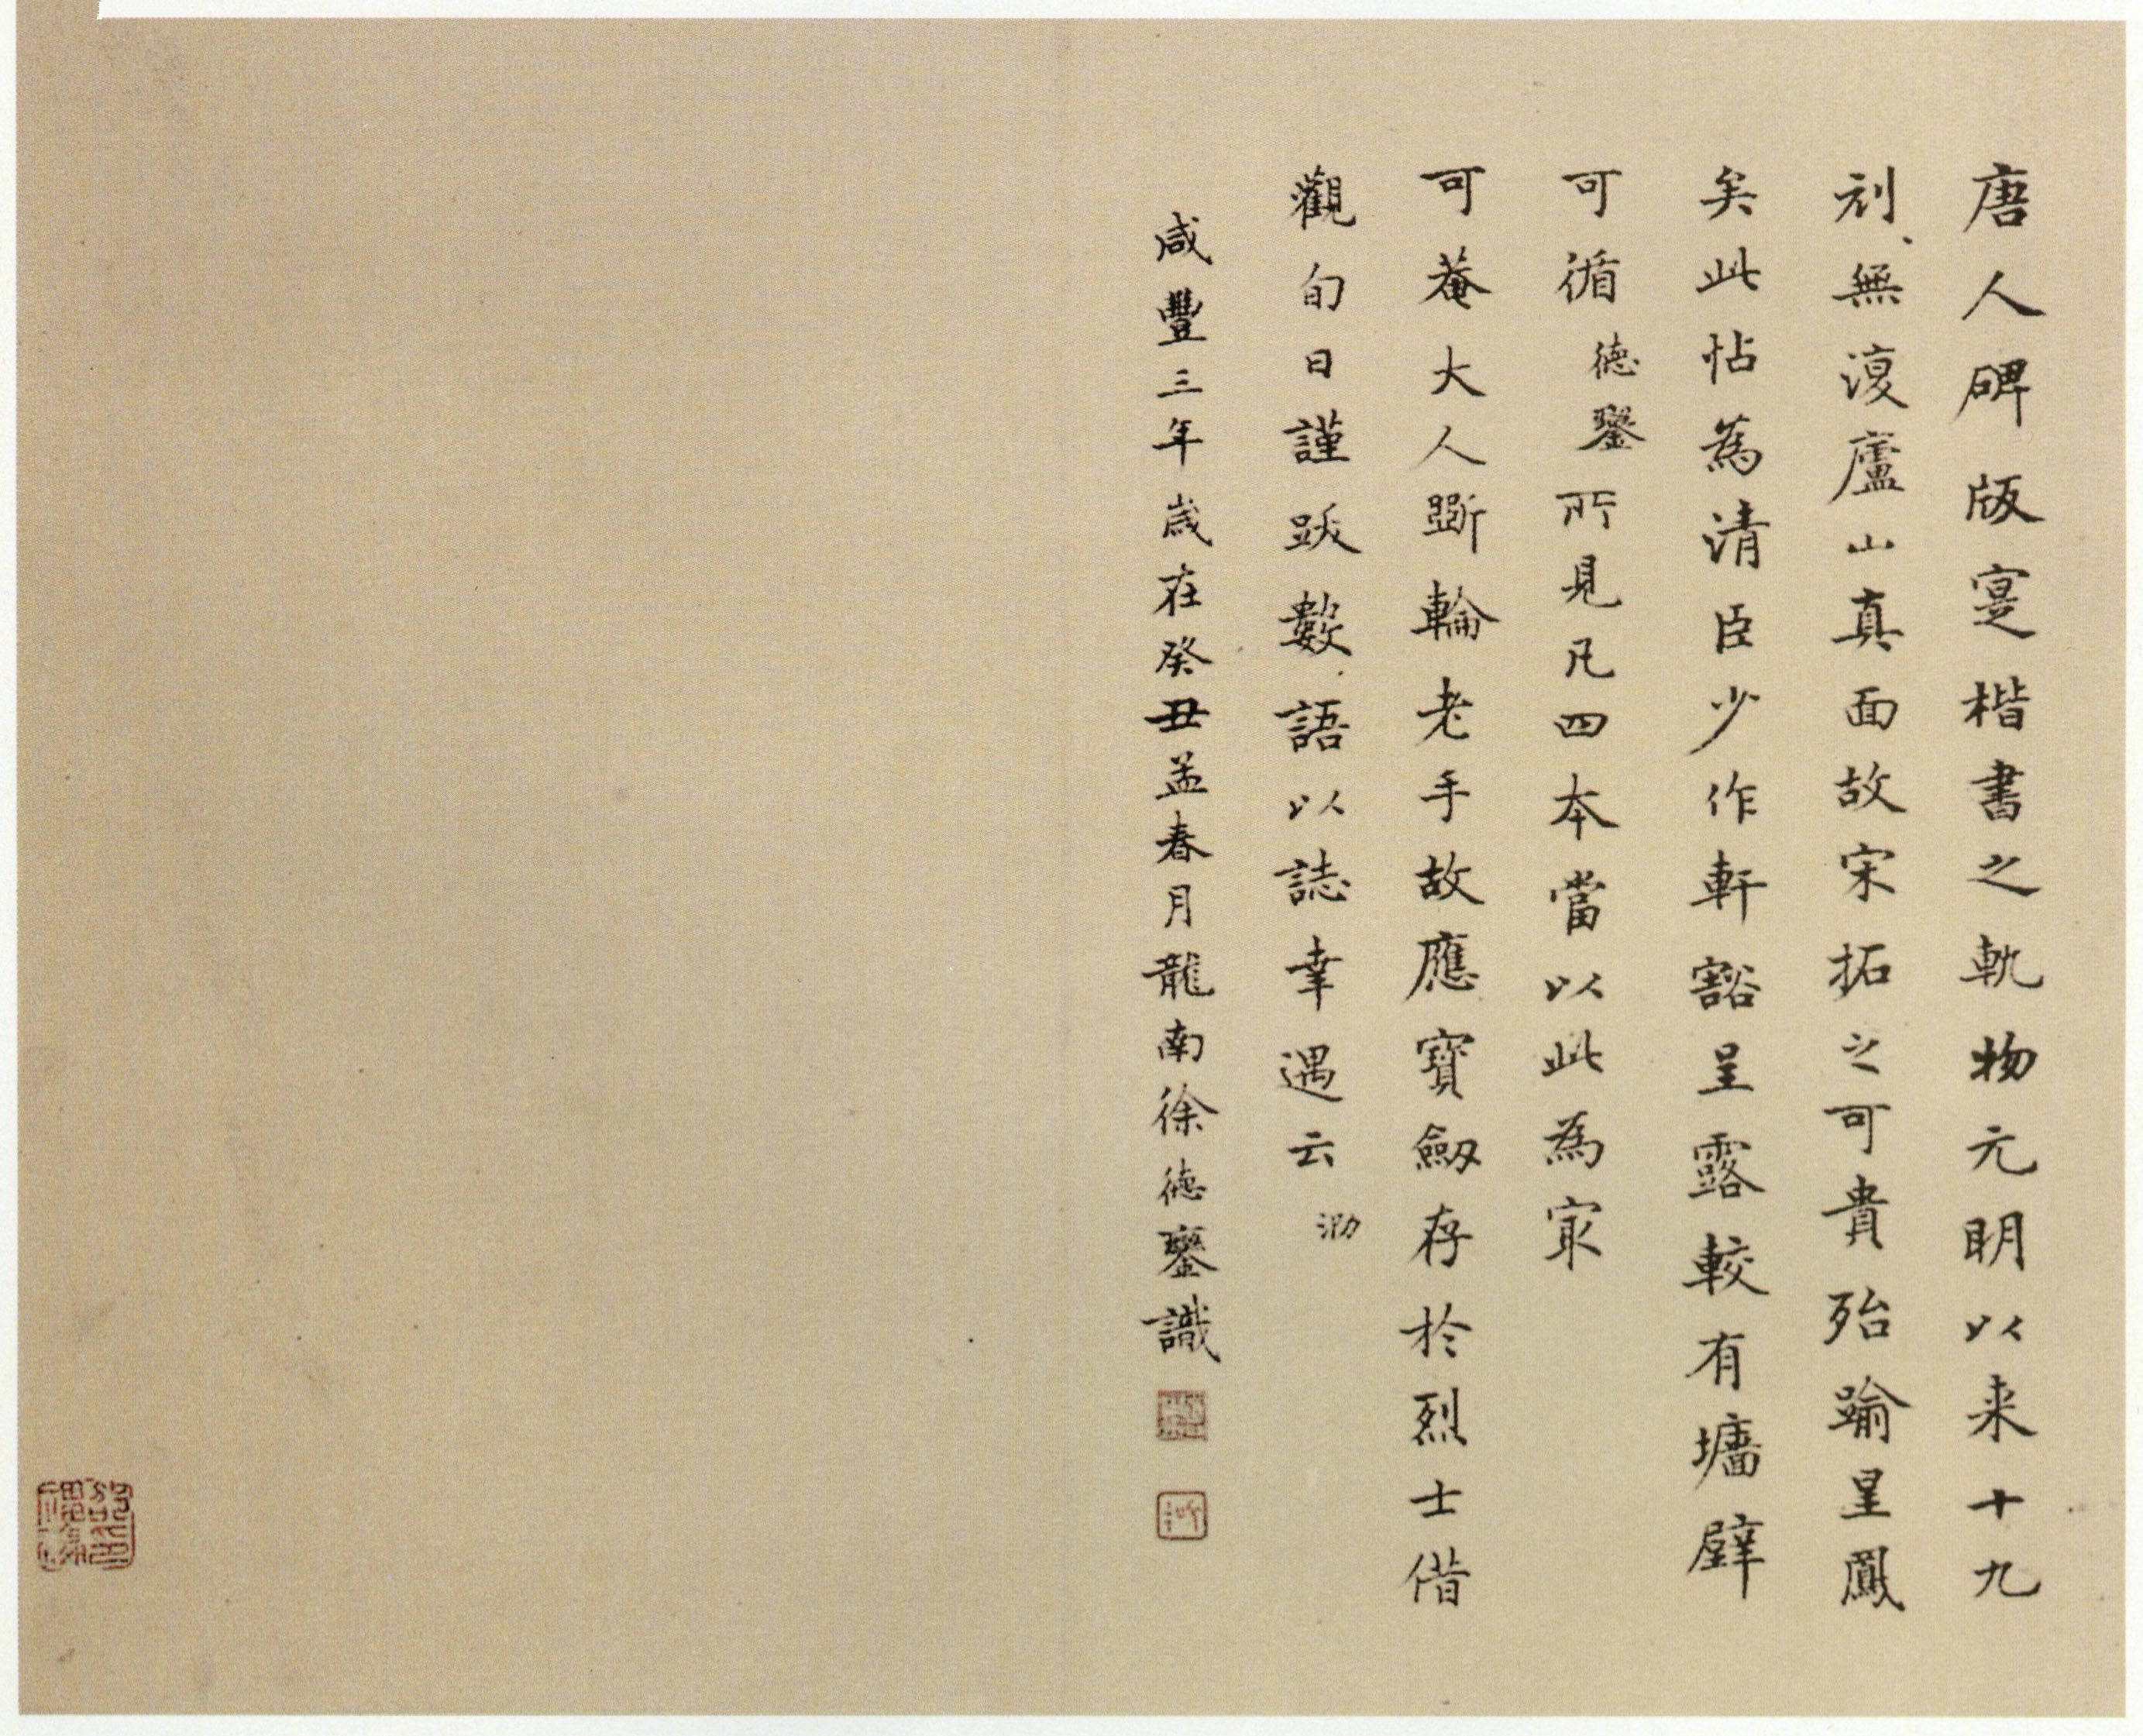 唐人碑版寔楷書之軌物元明以来十九
刓無復廬山真面故宋拓之可貴殆踰星鳳
矣此帖為清臣少作軒豁呈露較有墻壁
可循德鋆所見凡四本當以此為冣
可菴大人斲輪老手故應寶劒存於烈士借
觀旬日謹跋數語以誌幸遇云 泐
咸豐三年歲在癸丑孟春月龍南徐德鋆識